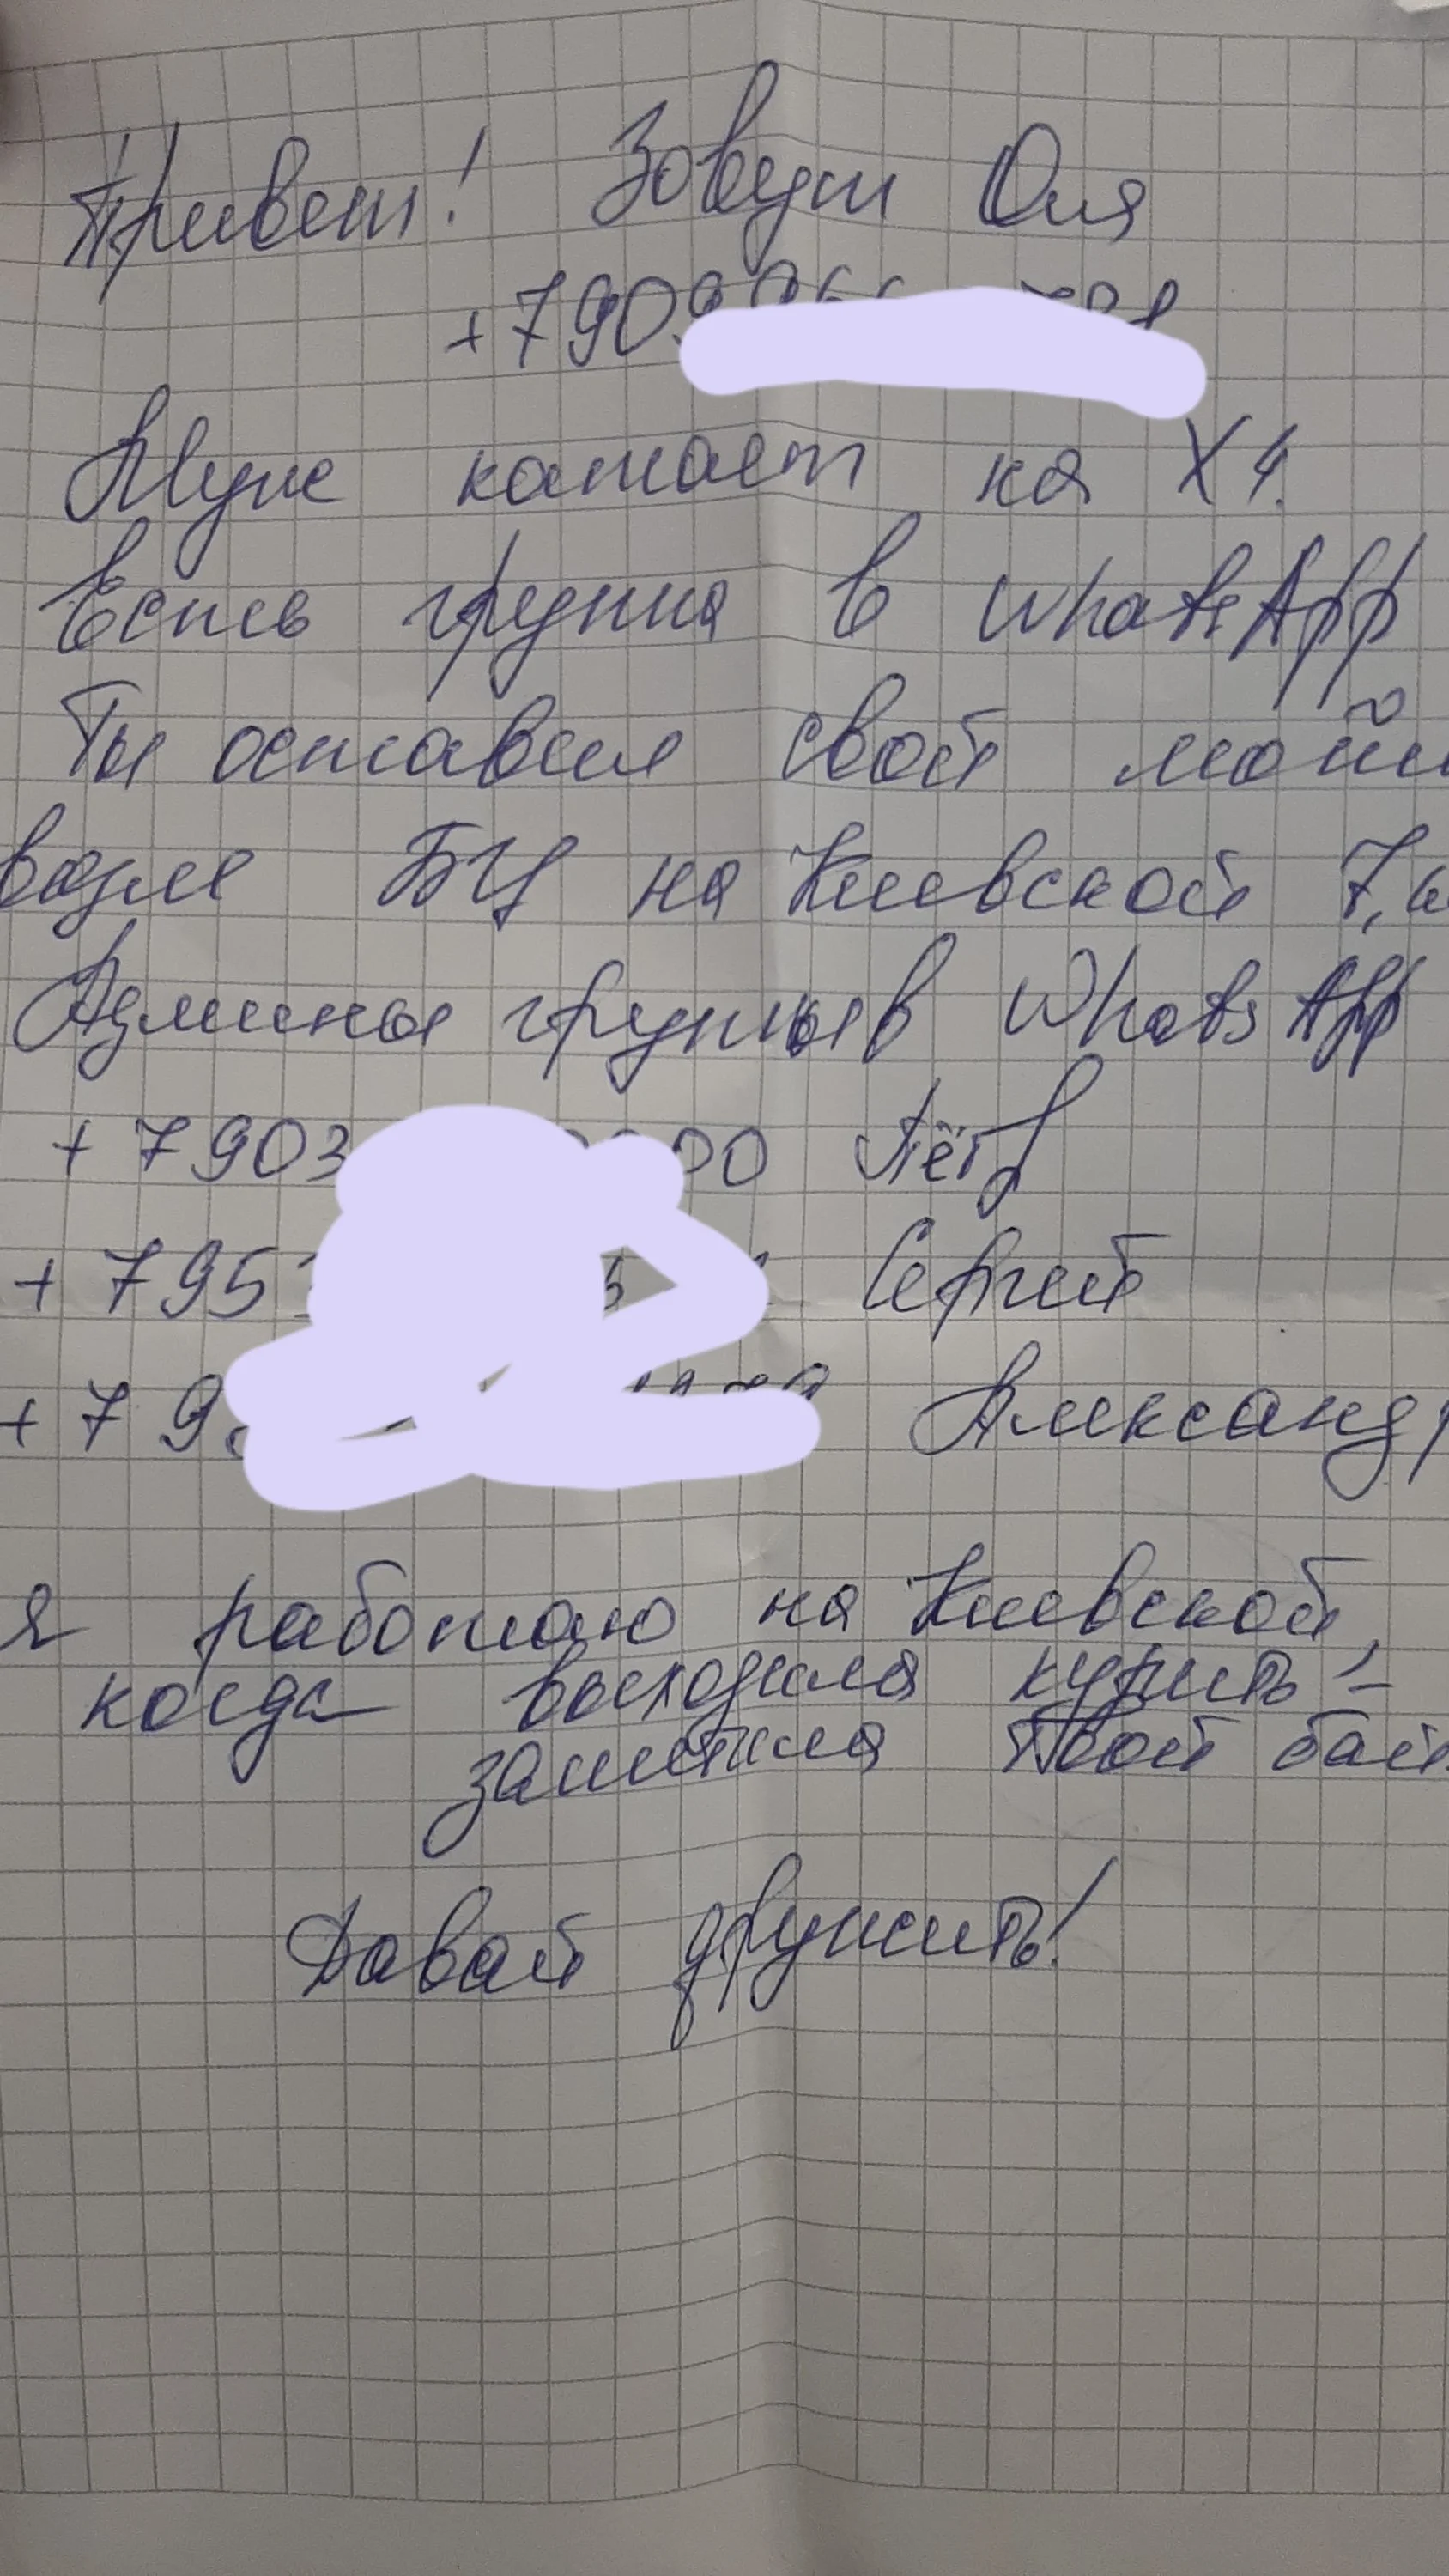 Привет! Зовут Оля
+7909
Муж катает на X4.
Есть группа в WhatsApp
Ты оставил свой
возле БЦ на Киевской 7,
Админы группы в WhatsApp
+7903 00 Пётр
+795 Сергей
+79 Александр
Я работаю на Киевской,
когда выходила курить -
заметила твой байк
Давай дружить!